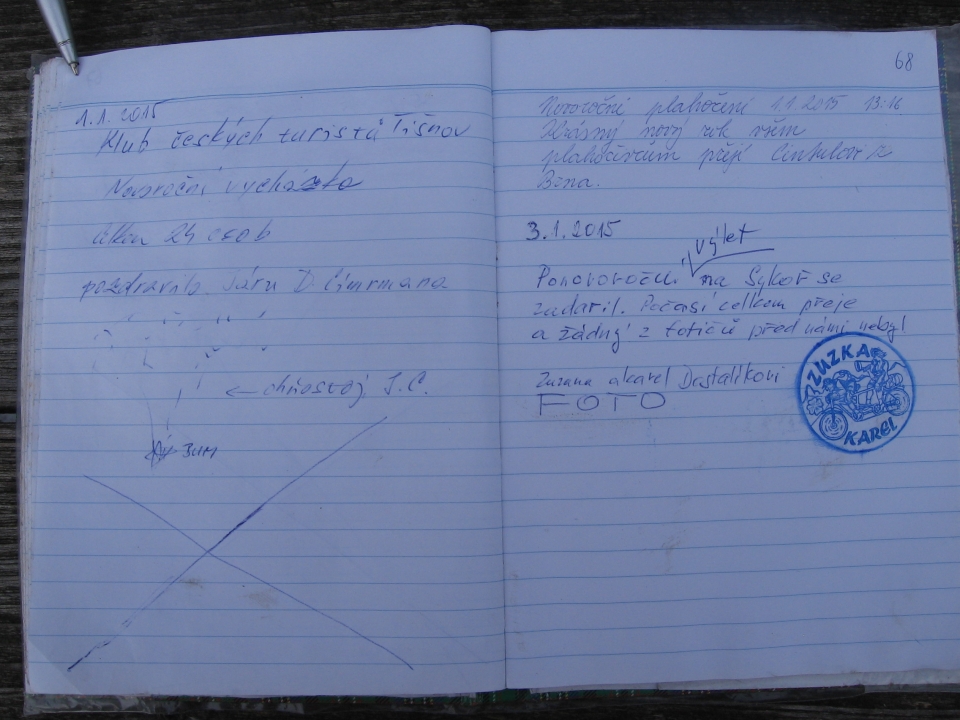 1.1.2015
Klub českých turistů Tišnov
Novoroční vycházka
celkem 24 osob
pozdravilo Járu D. Cimrmana
← chňostoj J.C.
BUM
68
Novoroční plahočení 1.1 2015 13:16
Krásný nový rok všem
plahočivcům přejí z
Brna.
3.1.2015
výlet
Ponovoroční na Sykoř se
zadařil. Počasí celkem přeje
a žádný z fotičů před námi nebyl
Zuzana a Karel Dastalíkovi
FOTO
ZUZKA
KAREL